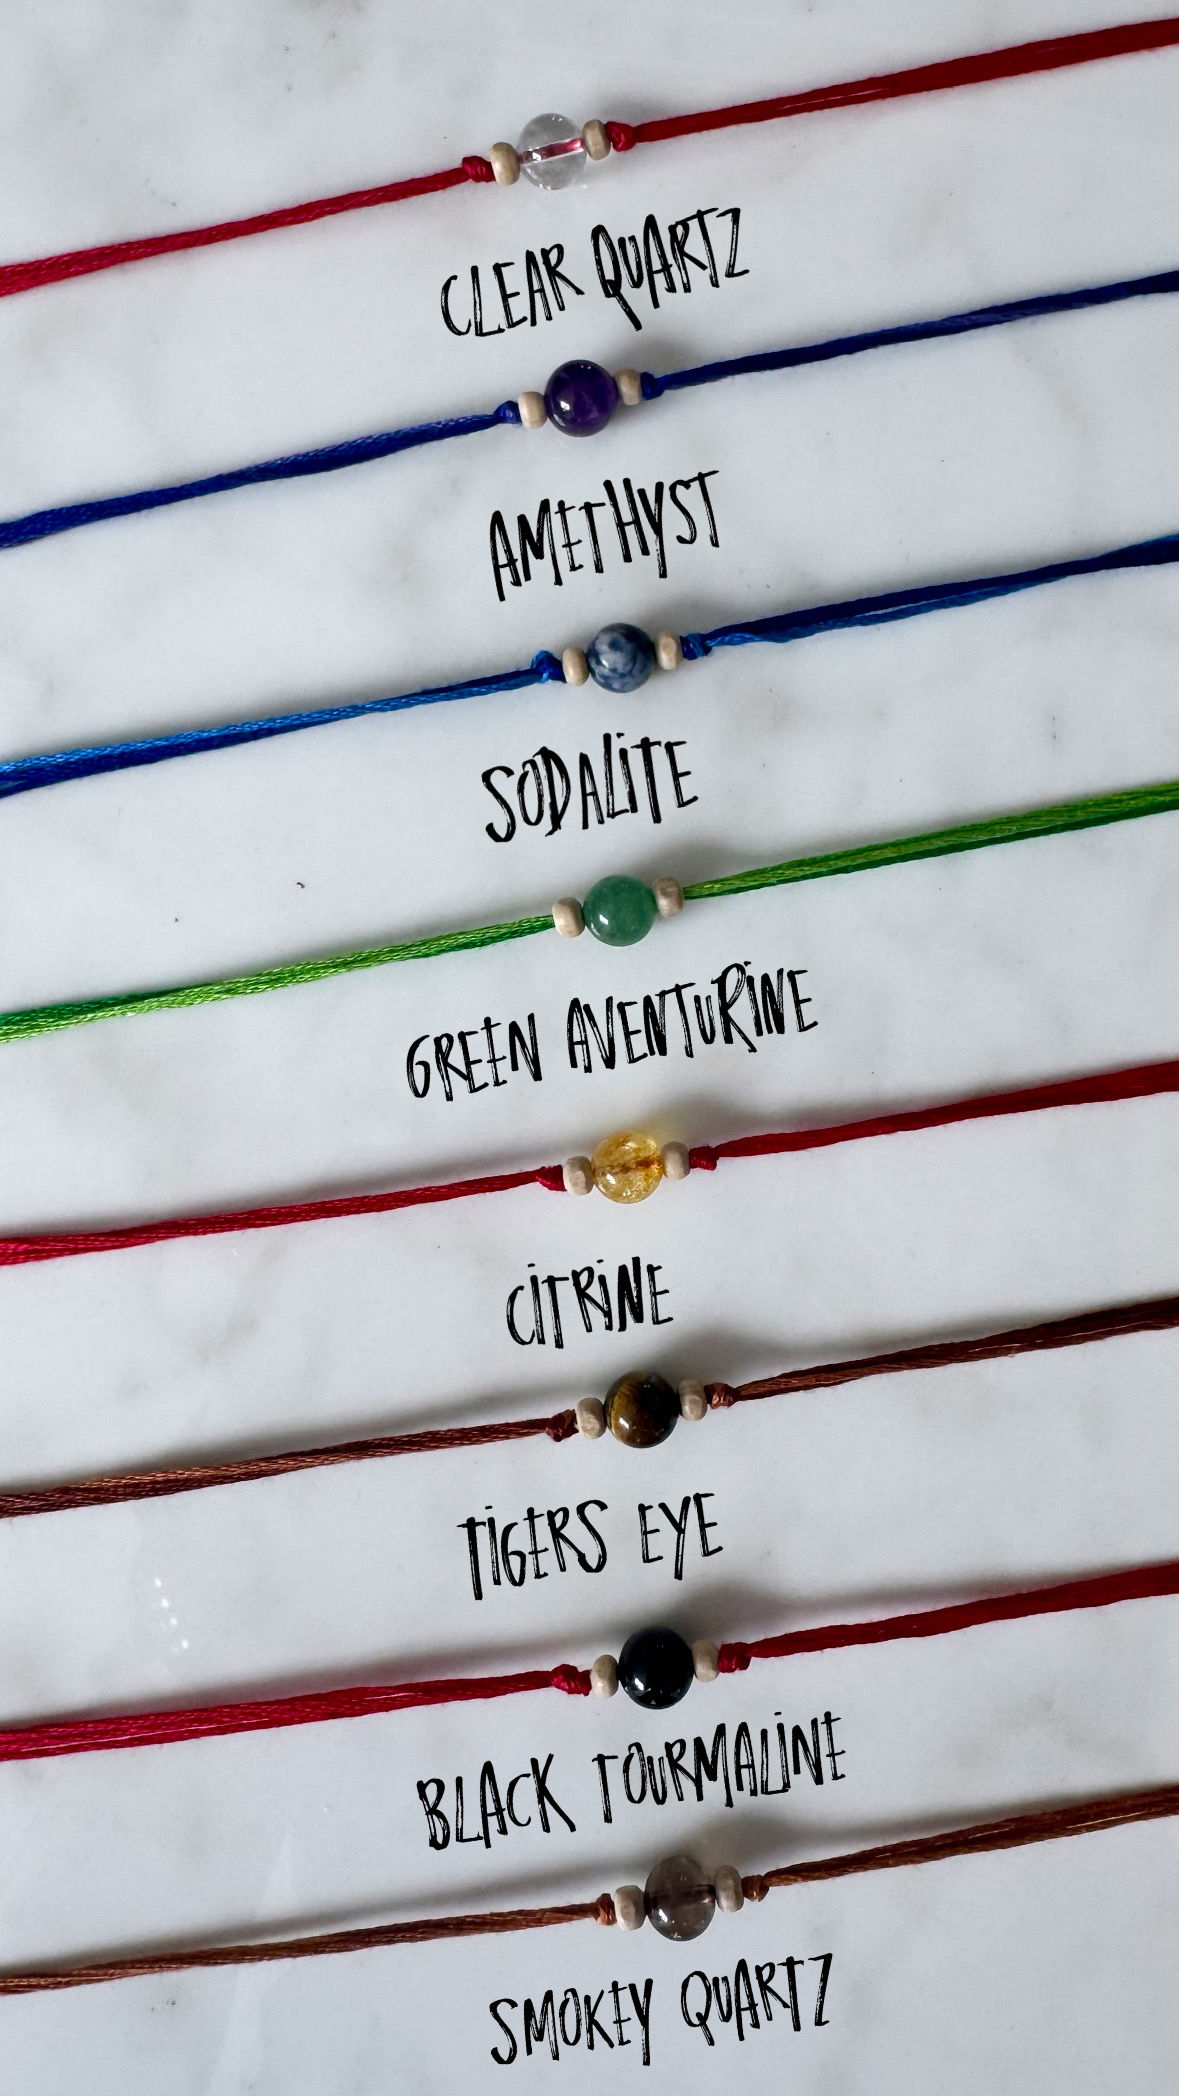 CLEAR QUARTZ
AMETHYST
SODALITE
GREEN AVENTURINE
CITRINE
TIGERS EYE
BLACK TOURMALINE
SMOKEY QUARTZ